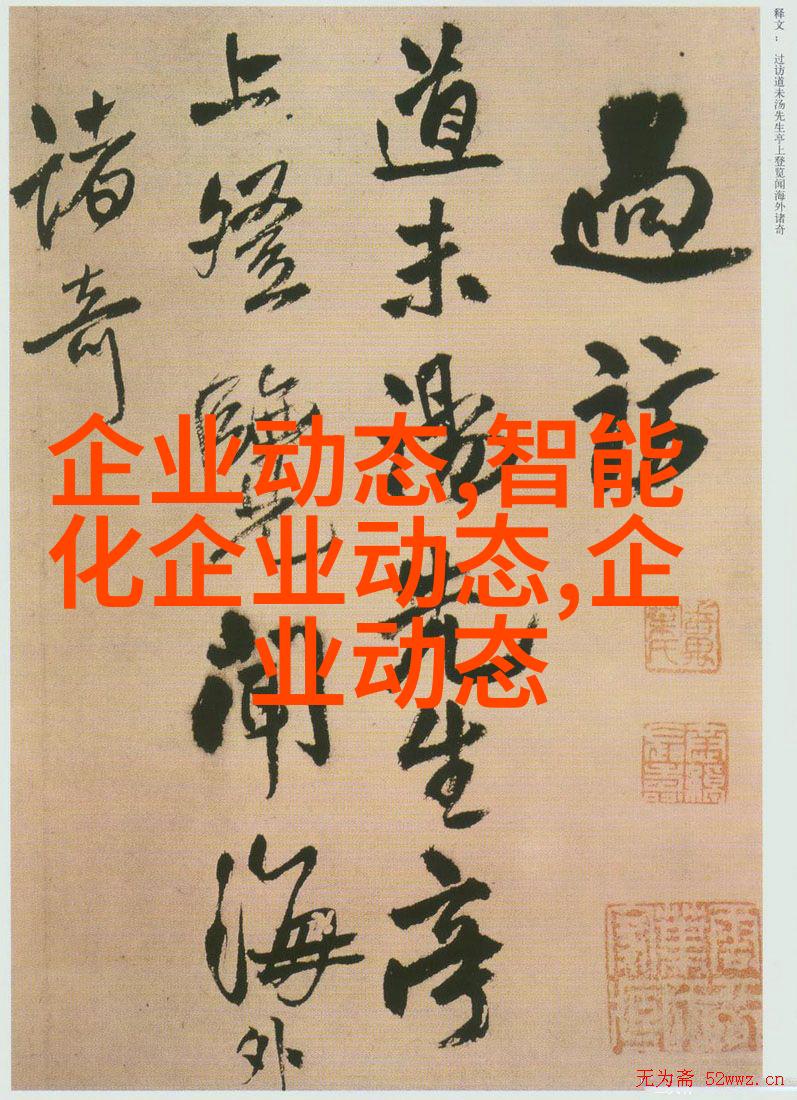 释文： 过访道未汤先生亭上登览闻海外诸奇
過訪
道未湯先生亭
上登覽聞海外
諸奇
企业动态,智能
化企业动态,企
业动态
无为斋 52wwz.cn